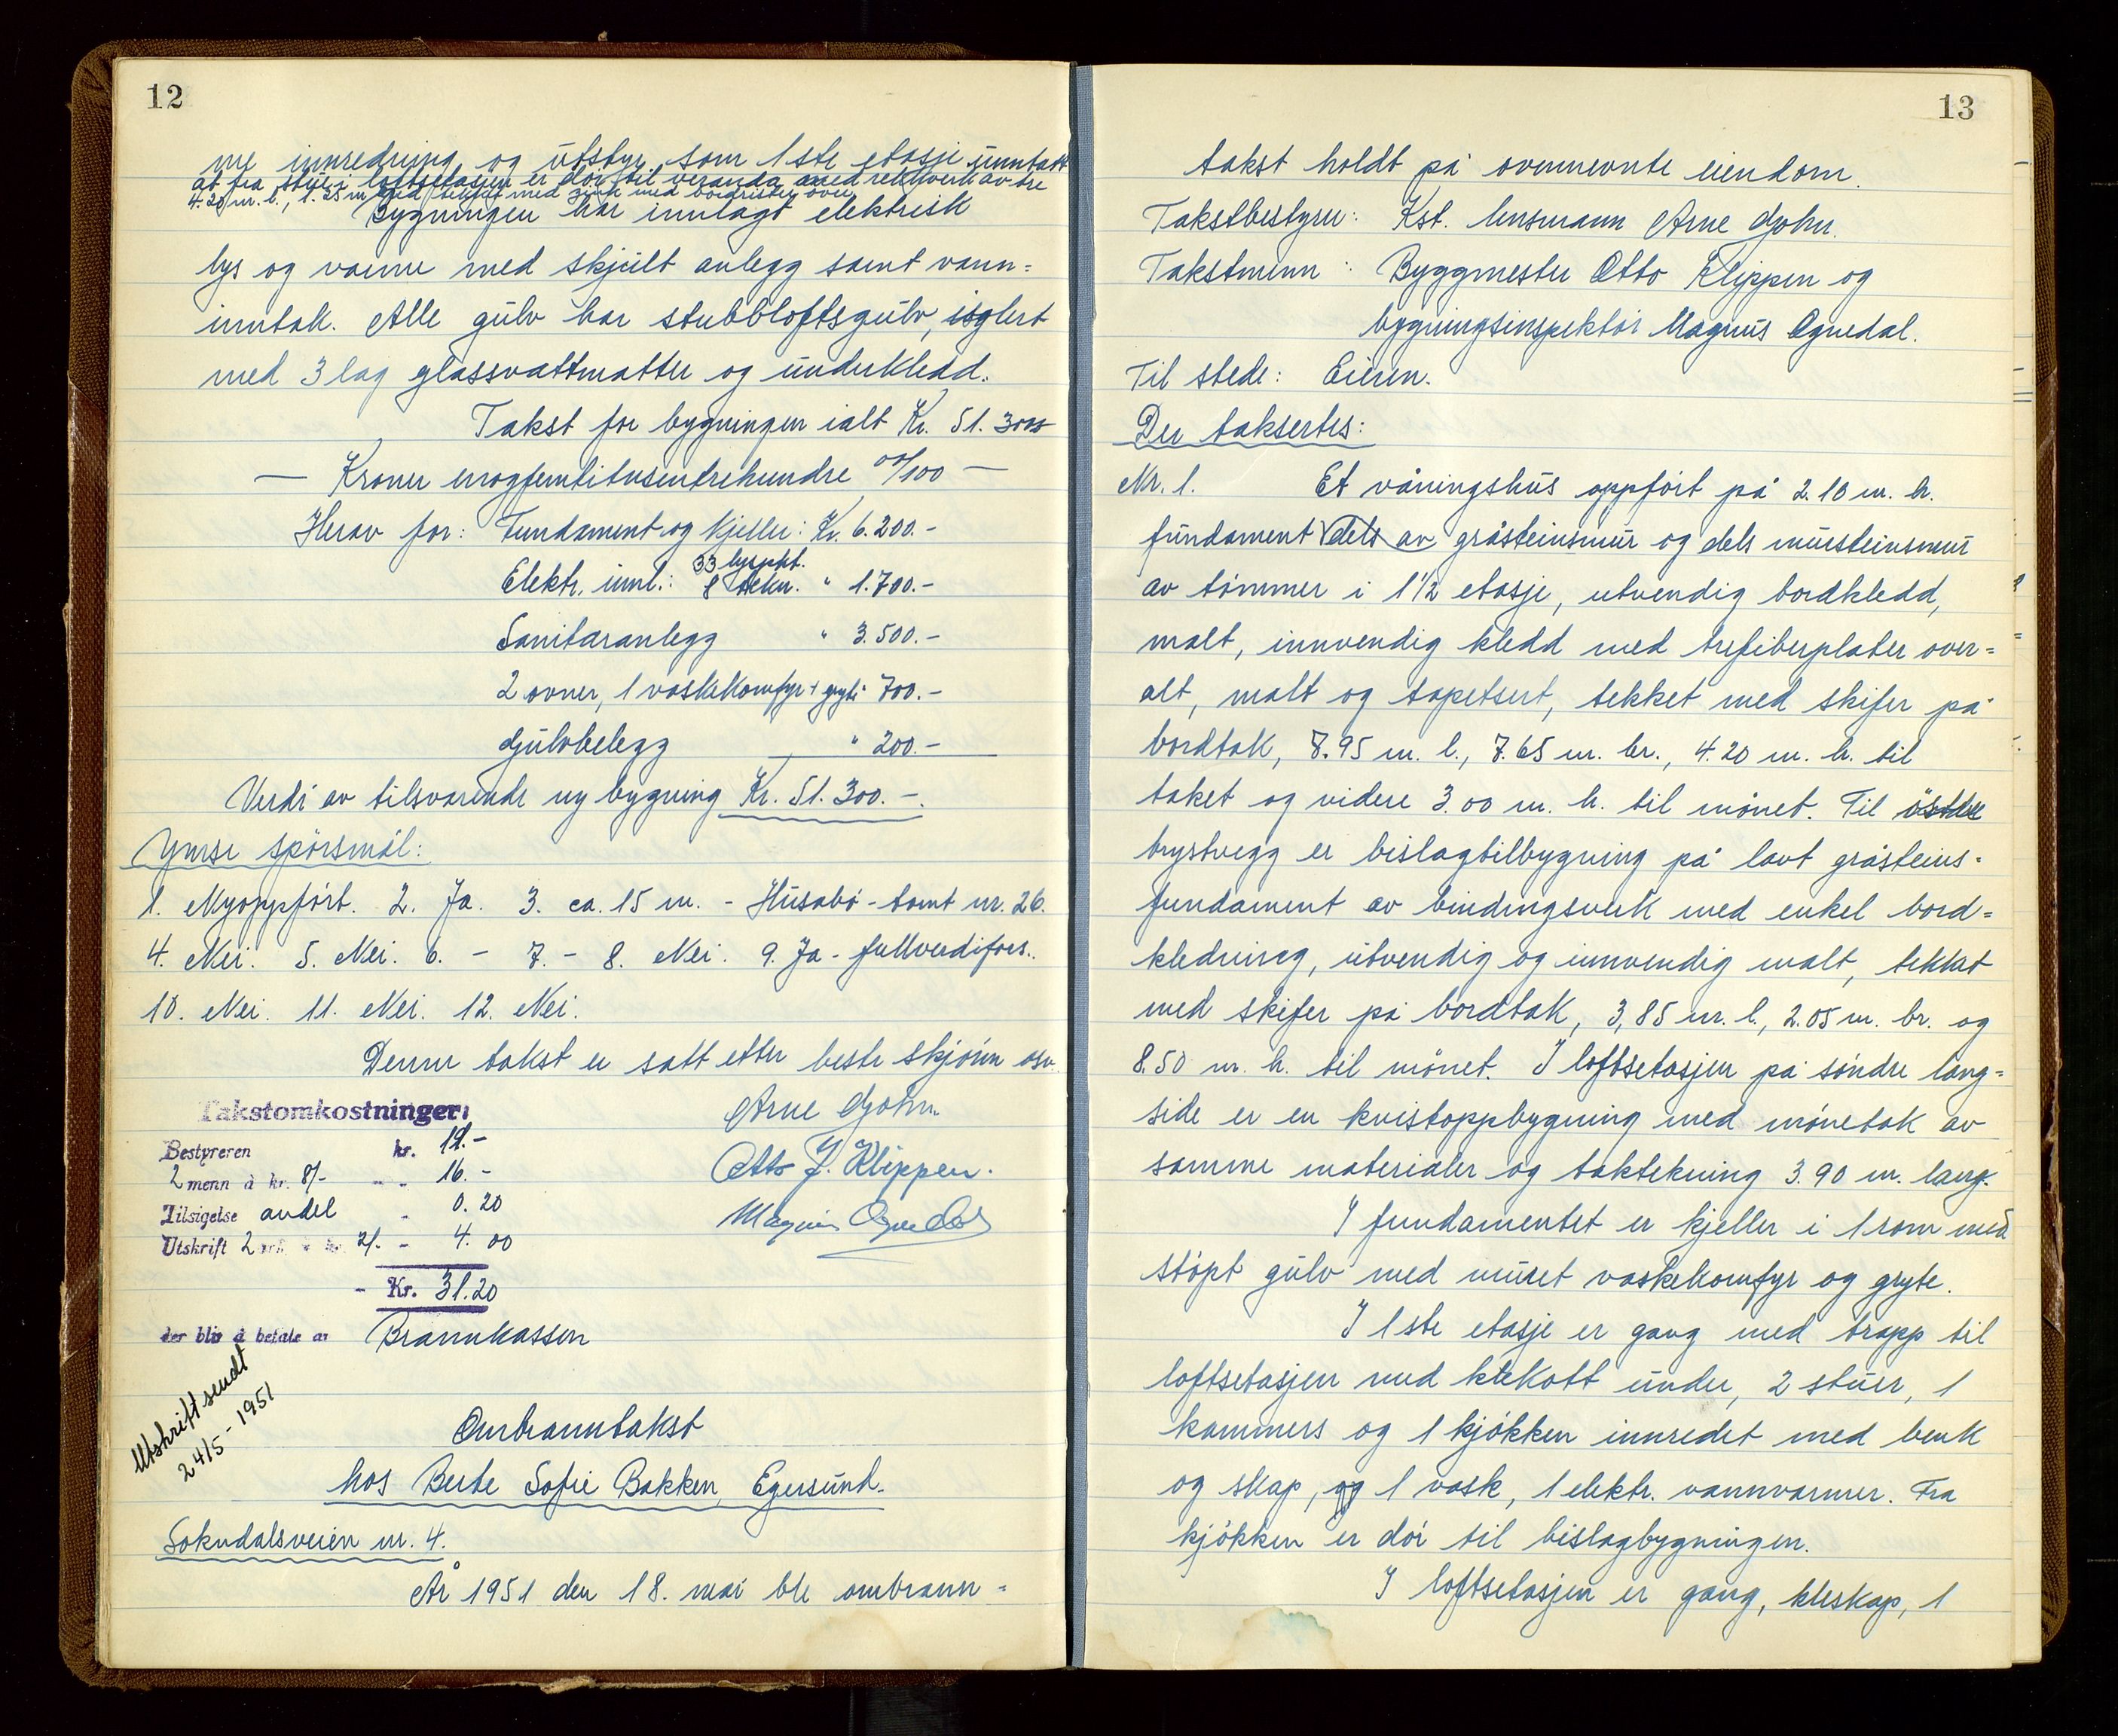 12
me innredning og utstyr som 1ste etasje unntatt
at fra stue i loftsetasjen er dör til veranda med rekkverk av tre
4.20 m. l., 1.25 m bred tekket med zink med bordrister over
Bygningen har innlagt elektrisk
lys og varme med skjult anlegg samt vann-
inntak. Alle gulv har stubbloftsgulv, isolert
med 3 lag glassvattmatter og underkledd.
Takst for bygningen ialt Kr. 51.300
— Kroner enogfemtitusentrehundre 00/100 —
Herav for: Fundament og kjeller: Kr. 6.200.-
33 lyspkt.
Elektr. innl.: 8 stkn. " 1.700.-
Sanitæranlegg " 3.500.-
2 ovner, 1 vaskekomfyr + gryte " 700.-
Gulvbelegg " 200.-
Verdi av tilsvarende ny bygning Kr. 51.300.-
Ymse spörsmål:
1. Nyoppfört. 2. Ja. 3. ca. 15 m. - Husabö - tomt nr. 26.
4. Nei. 5. Nei. 6. - 7. - 8. Nei. 9. Ja - fullverdifors..
10. Nei. 11. Nei. 12. Nei.
Denne takst er satt etter beste skjönn osv.
Takstomkostninger:
Arne Gjohn
Bestyreren kr. 11.-
2 menn à kr. 8/- - - 16.-
Otto J. Klippen.
Tilsigelse andel - 0.20
Magnus Ognedal
Utskrift 2 ark à kr. 2/. - 4.00
- Kr. 31.20
der blir å betale av Brannkassen
Utskrift sendt
24/5 - 1951
Ombranntakst
hos Berte Sofie Bakken, Egersund.
Sokndalsveien nr. 4.
År 1951 den 18. mai ble ombrann-
13
takst holdt på ovennevnte eiendom.
Takstbestyrer: Kst. lensmann Arne Gjohn.
Takstmenn: Byggmester Otto Klippen og
bygningsinspektör Magnus Ognedal.
Til stede: Eieren.
Der taksertes:
Nr. 1. Et våningshus oppfört på 2.10 m. h.
fundament dels av gråsteinsmur og dels mursteinsmur
av tömmer i 1 1/2 etasje, utvendig bordkledd,
malt, innvendig kledd med trefiberplater over-
alt, malt og tapetsert, tekket med skifer på
bordtak, 8.95 m. l., 7.65 m. br., 4.20 m. h. til
taket og videre 3.00 m. h. til mönet. Til östre
brystvegg er bislagtilbygning på lavt gråsteins-
fundament av bindingsverk med enkel bord-
kledning, utvendig og innvendig malt, tekket
med skifer på bordtak, 3,85 m. l., 2.05 m. br. og
8.50 m. h. til mönet. I loftsetasjen på söndre lang-
side er en kvistoppbygning med mönetak av
samme materialer og taktekning 3.90 m. lang.
I fundamentet er kjeller i 1 rom med
stöpt gulv med muret vaskekomfyr og gryte.
I 1ste etasje er gang med trapp til
loftsetasjen med klekott under, 2 stuer, 1
kammers og 1 kjökken innredet med benk
og skap, og 1 vask, 1 elektr. vannvarmer. Fra
kjökken er dör til bislagbygningen.
I loftsetasjen er gang, kleskap, 1